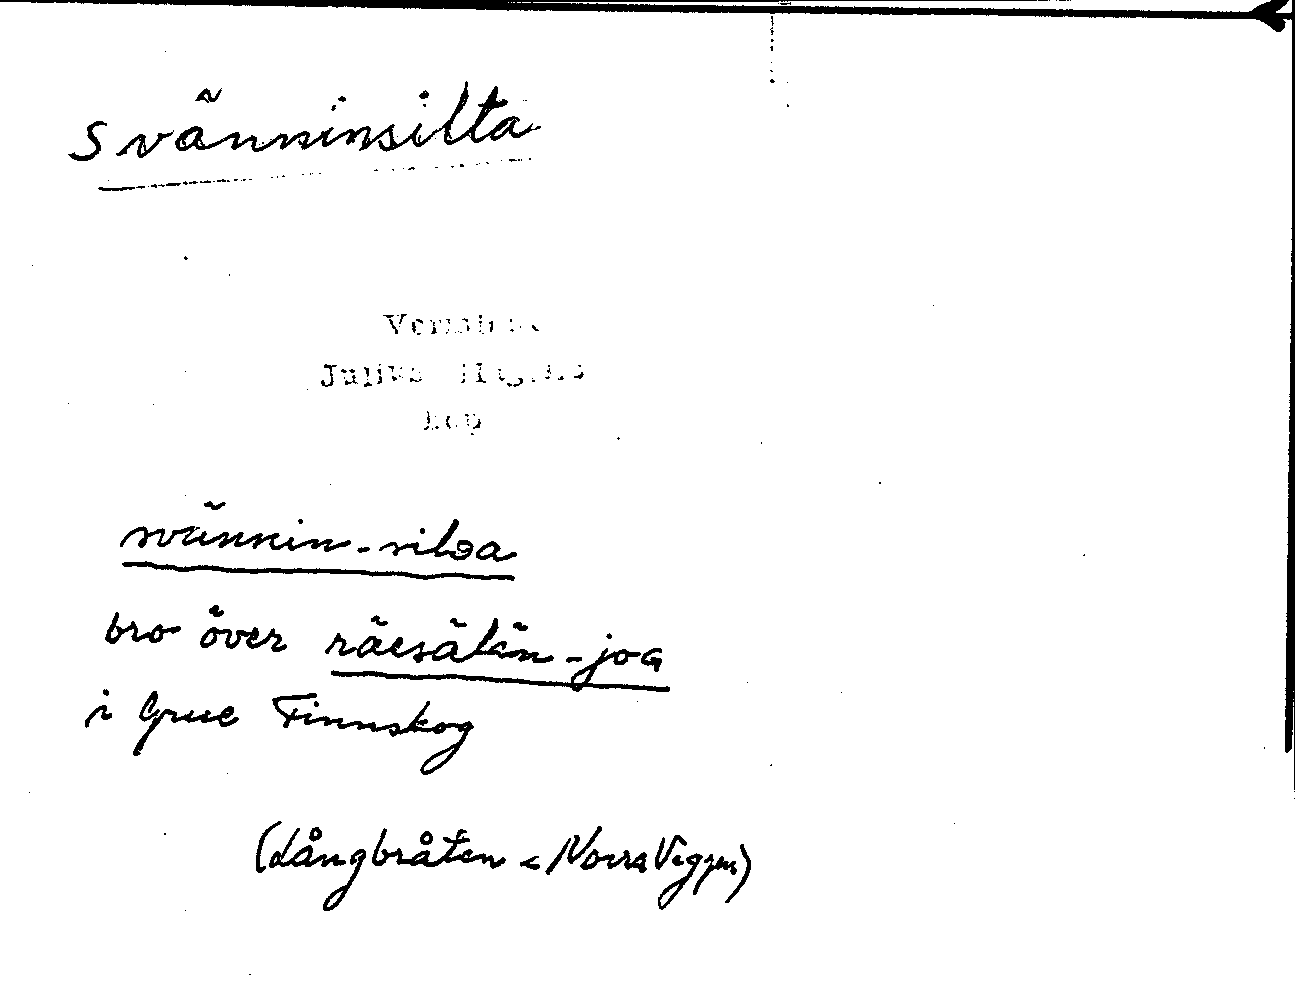 Svänninsilta
Julius
svännin-silda
bro över räesälän-joa
i Grue Finnskog
(Långbråten < Norra Viggen)